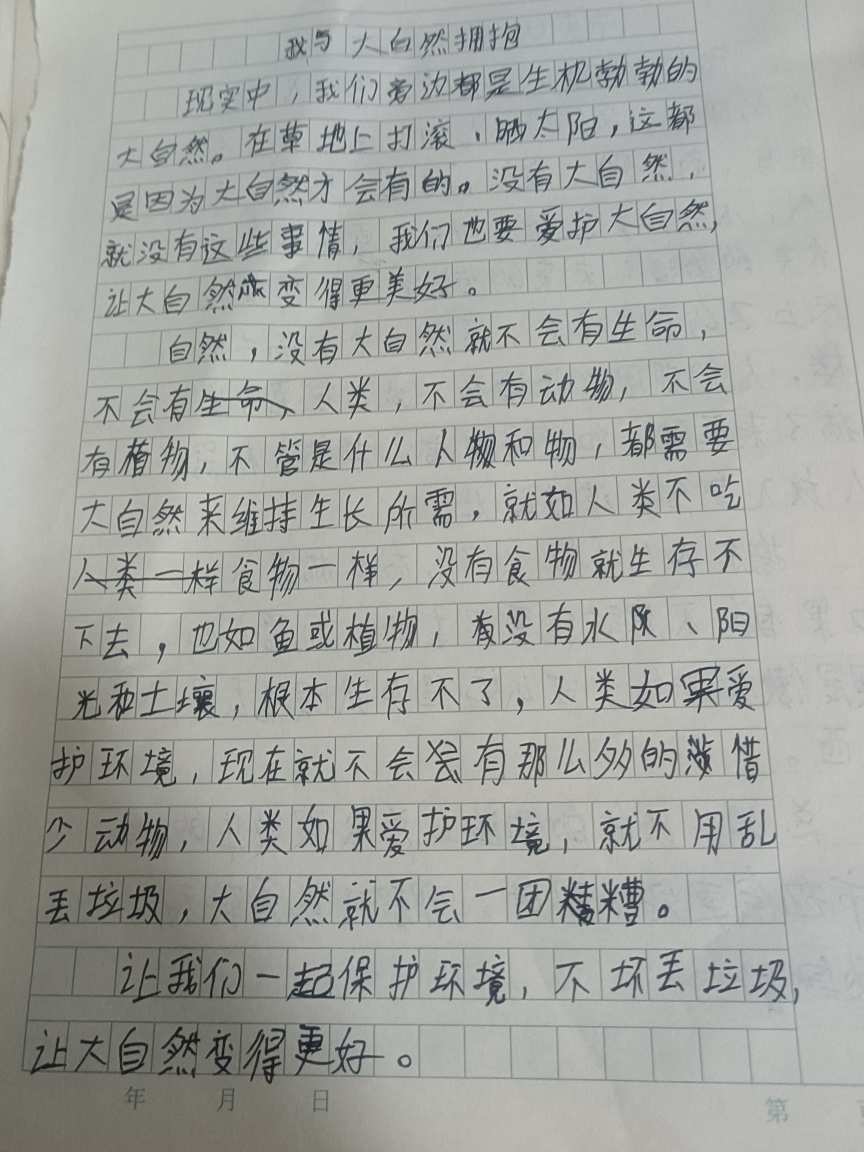 我与大自然拥抱
现实中，我们旁边都是生机勃勃的
大自然。在草地上打滚、晒太阳，这都
是因为大自然才会有的。没有大自然，
就没有这些事情，我们也要爱护大自然，
让大自然变得更美好。
自然，没有大自然就不会有生命，
不会有生命、人类，不会有动物，不会
有植物，不管是什么人物和物，都需要
大自然来维持生长所需，就如人类不吃
人类一样食物一样，没有食物就生存不
下去，也如鱼或植物，没有水、阳
光和土壤，根本生存不了，人类如果爱
护环境，现在就不会有那么多的惜
少动物，人类如果爱护环境，就不用乱
丢垃圾，大自然就不会一团糟糟。
让我们一起保护环境，不坏丢垃圾，
让大自然变得更好。
年 月 日
第